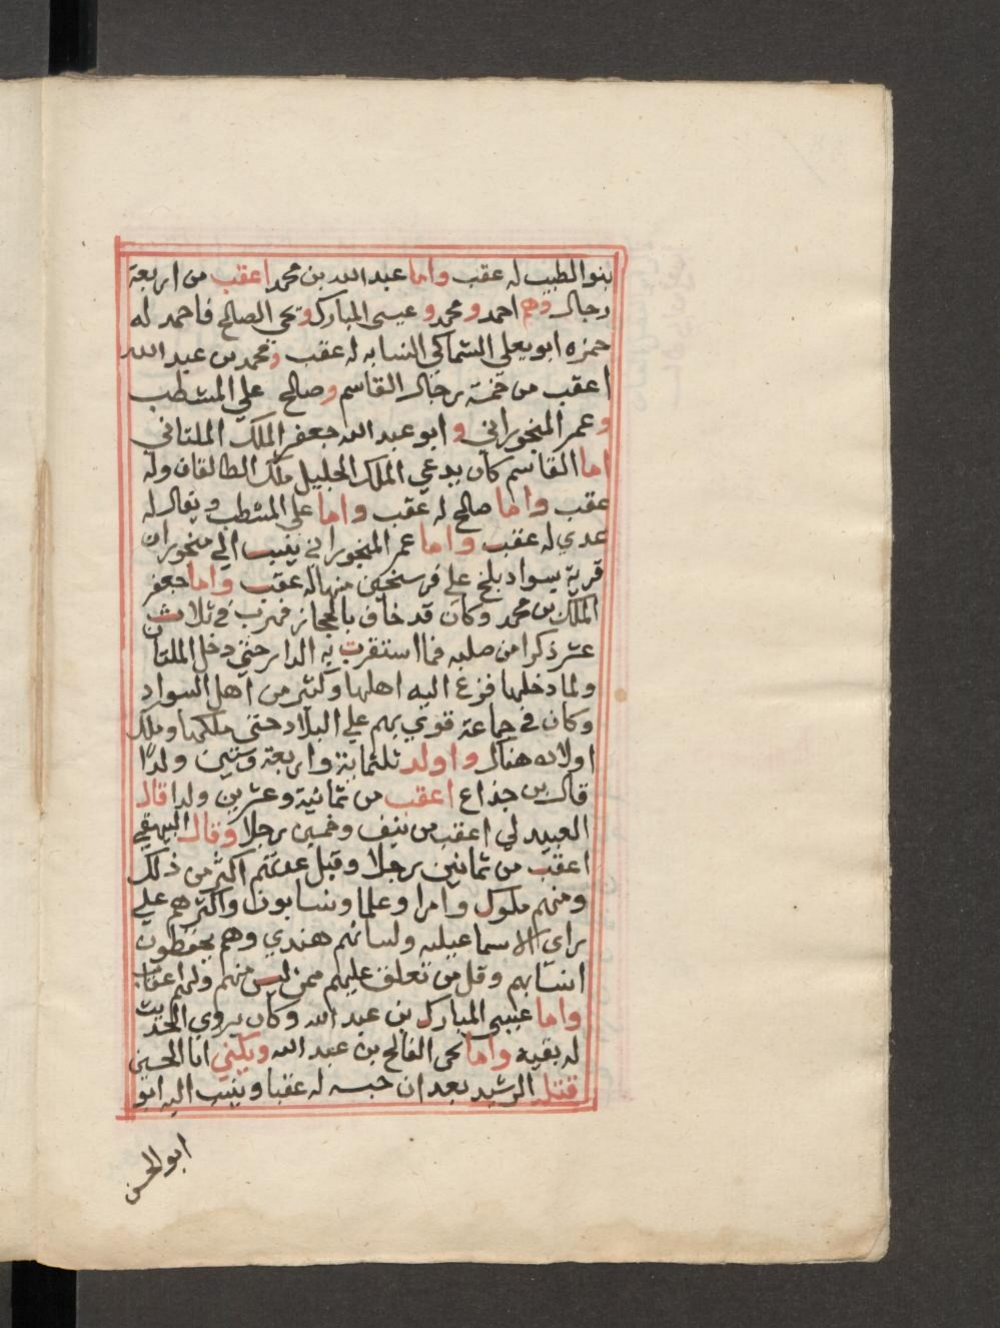 بنوا الطيب له عقب واما عبد الله بن محمد اعقب من اربعة
رجال وهم احمد ومحمد وعيسى المبارك ويحي الصالح فاحمد له
حمزه ابو يعلى السماكي النسابه له عقب ومحمد بن عبد الله
اعقب من خمسة رجال القاسم وصالح علي المشطب
وعمر المنجوراني و ابو عبد الله جعفر الملك الملتاني
اما القاسم كان يدعي الملك الجليل ملك الطالقان وله
عقب واما صالح له عقب واما علي المشطب ويقال له
عدي له عقب واما عمر المنجوراني ينسب الي منجوران
قرية بسواد بلخ علي فرسخين منها له عقب واما جعفر
الملك بن محمد وكان قد خاف بالحجاز فهرب في ثلاث
عشر ذكرا من صلبه فما استقرت به الدار حتي دخل الملتان
ولما دخلها فزع اليه اهلها وكثير من اهل السواد
وكان في جماعة قوي بهم علي البلاد حتي ملكها وملك
اولاده هناك واولد ثلثماية واربعة وستين ولدا
قال بن خداع اعقب من ثمانية وعشرين ولدا قال
العبيد لي اعقب من نيف وخمسين رجلا وقال البيهقي
اعقب من ثمانين رجلا وقيل عدتهم اكثر من ذلك
ومنهم ملوك وامرا وعلما ونسابون واكثرهم علي
راي الاسماعيليه ولسانهم هندي وهم يحفظون
انسابهم وقل من تعلق عليهم ممن ليس منهم ولهم اعقاب
واما عيسى المبارك بن عبد الله وكان يروي الحديث
له بقيه واما يحي الصالح بن عبد الله ويكني ابا الحسين
قتله الرشيد بعد ان حبسه له عقبا وينسب اليه ابو
ابو الحسن